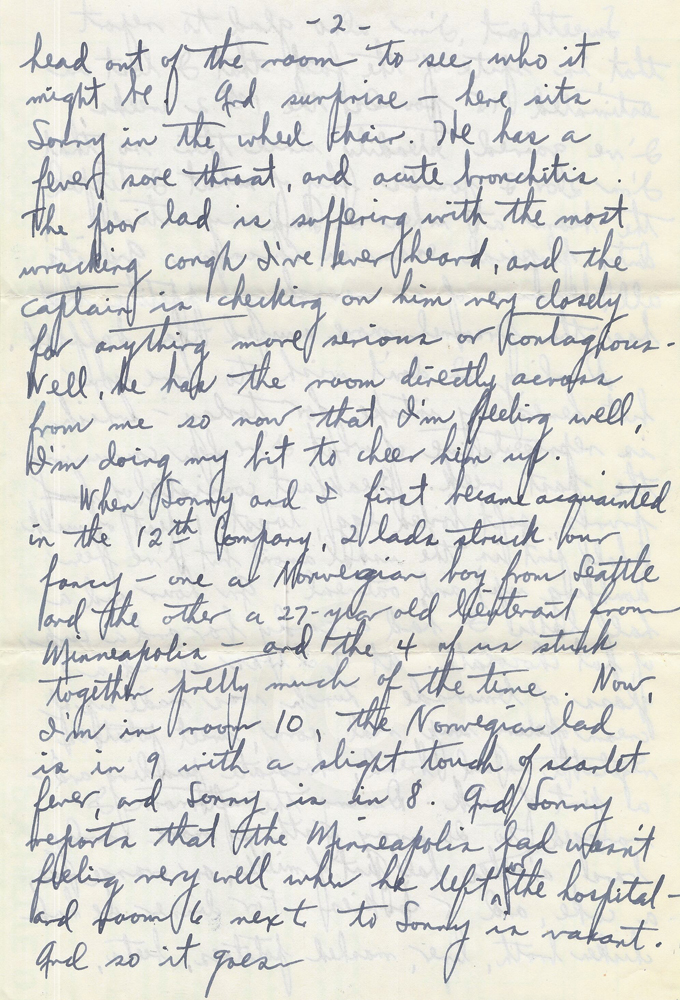 - 2 -
head out of the room to see who it
might be. And surprise - here sits
Sonny in the wheel chair. He has a
fever, sore throat, and acute bronchitis.
The poor lad is suffering with the most
wracking cough I've ever heard, and the
captain is checking on him very closely
for anything more serious or contagious -
Well, he has the room directly across
from me so now that I'm feeling well,
I'm doing my bit to cheer him up.
When Sonny and I first became acquainted
in the 12th Company, 2 lads struck our
fancy - one a Norwegian boy from Seattle
and the other a 27-year old lieutenant from
Minneapolis - and the 4 of us stuck
together pretty much of the time. Now,
I'm in room 10, the Norwegian lad
is in 9 with a slight touch of scarlet
fever, and Sonny is in 8. And Sonny
reports that the Minneapolis lad wasn't
feeling very well when he left for the hospital -
and room 6 next to Sonny is vacant.
And so it goes